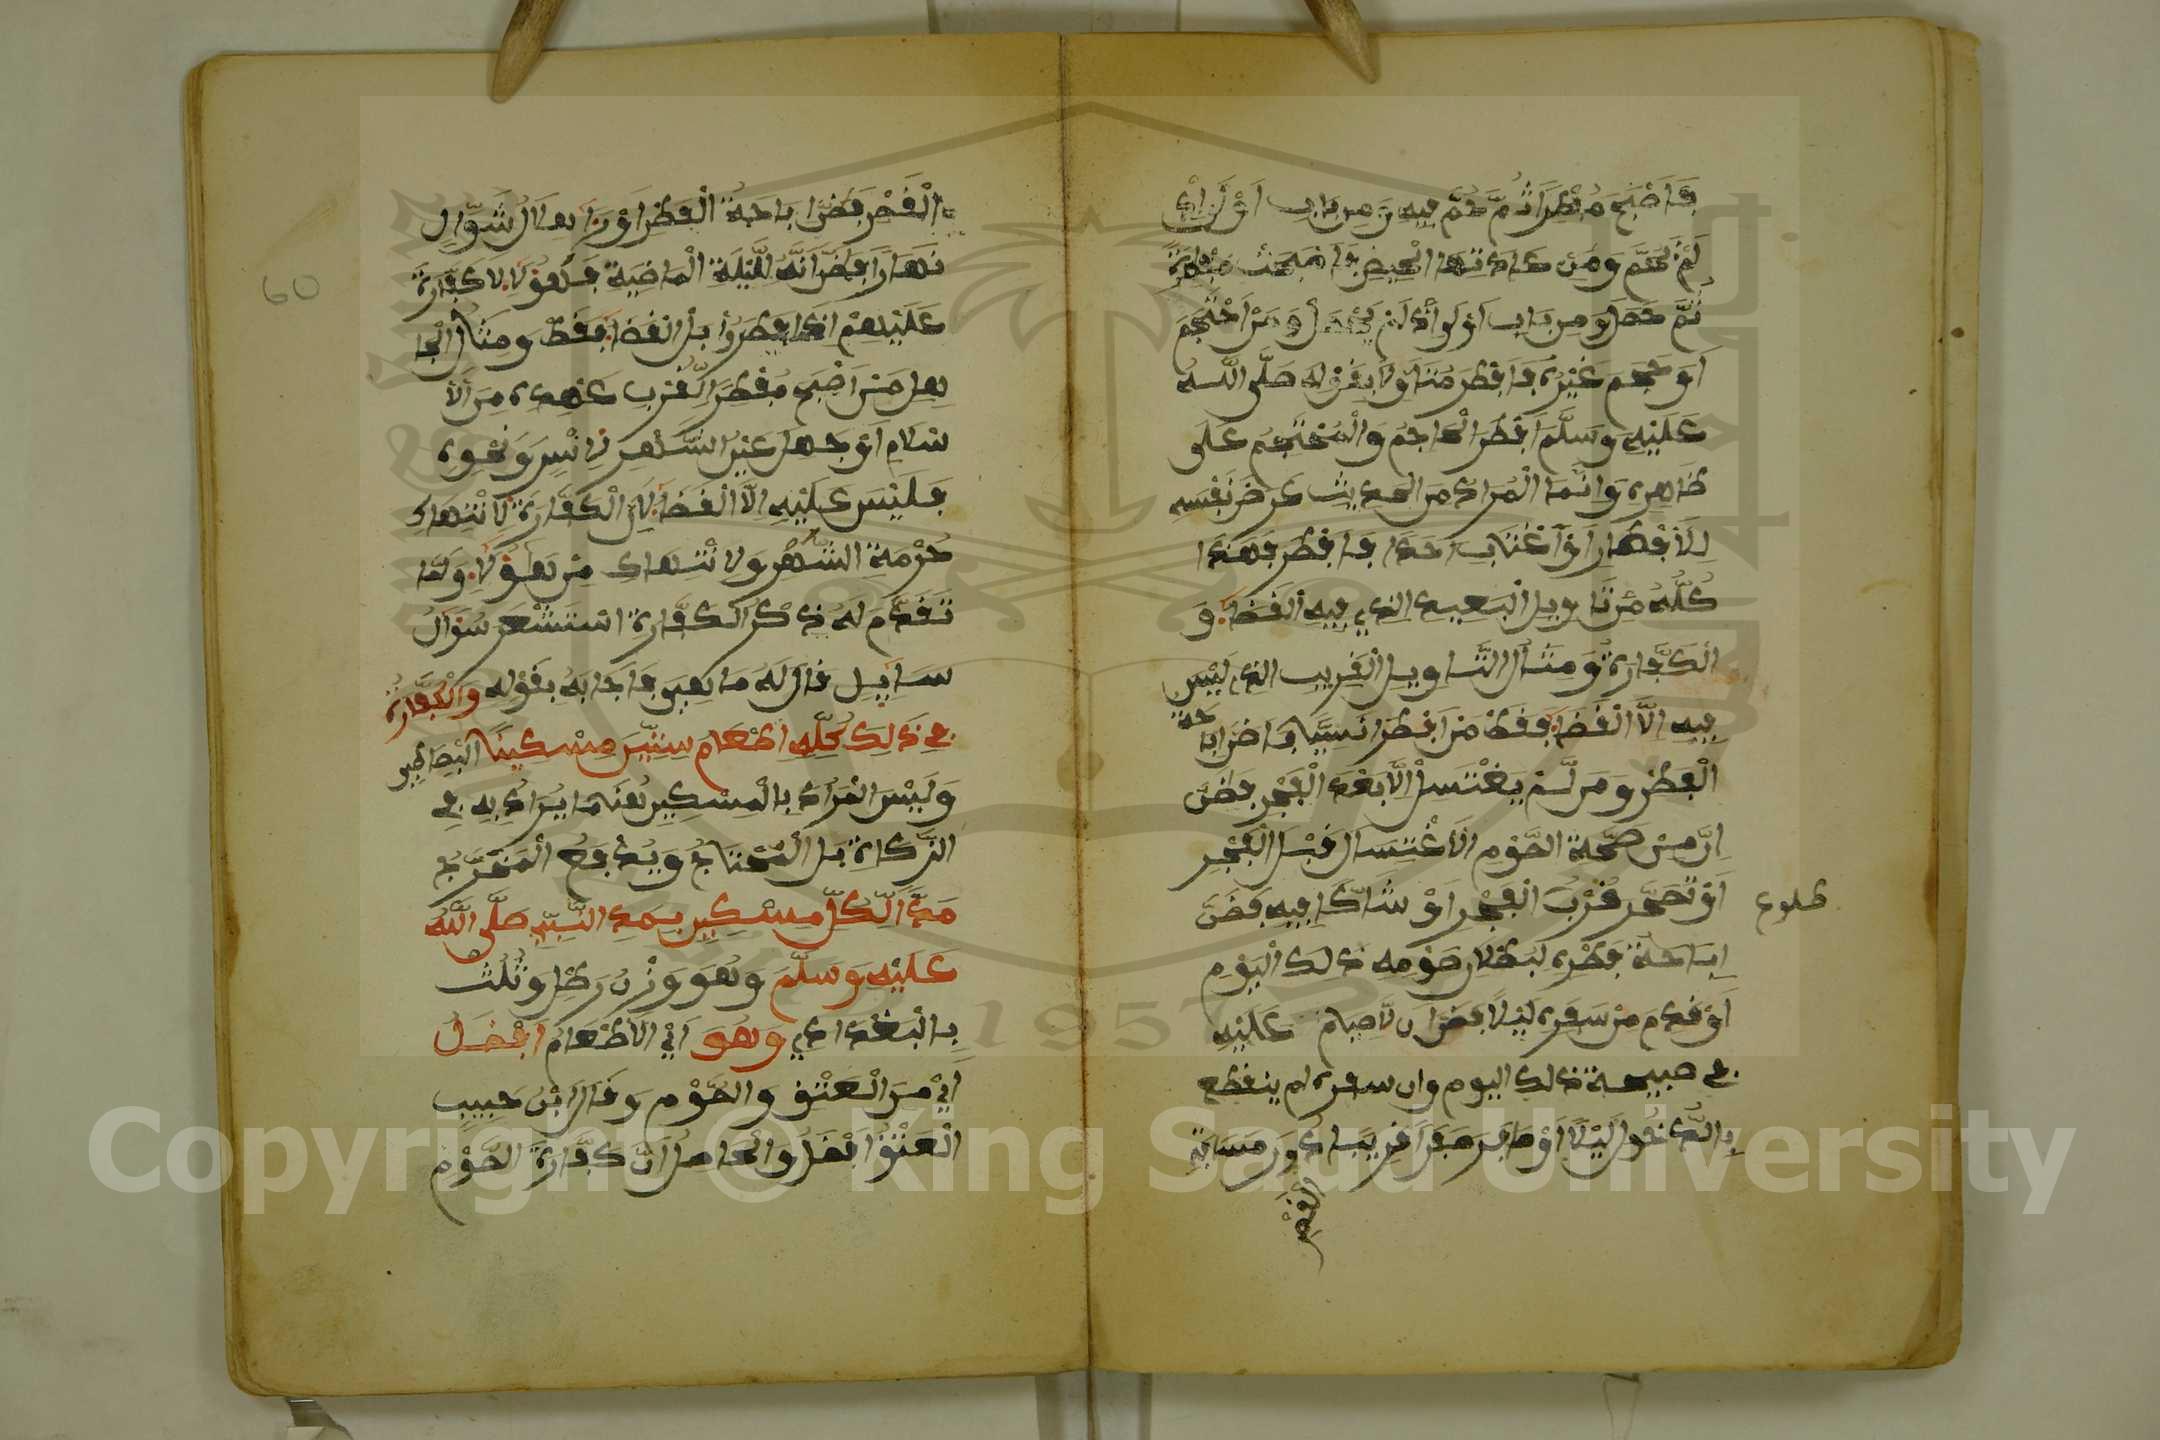 فاصبح مفطرا ثم حم فيه ومن باب اولى ان
لم يحم ومن عادتها الحيض فاصبحت مفطرة
ثم حصل ومن باب اولى ان لم يحصل ومن احتجم
او حجم غيره فافطر متاولا بقوله صلى الله
عليه وسلم افطر الحاجم والمحتجم على
ظاهره وانما المراد من الحديث عرض نفسه
للافطار او اغتاب احدا فافطر فهذا
كله من تاويل البعيد الذي فيه القضا و
الكفارة ومثال التاويل القريب الذي ليس
فيه الا القضا فقط من افطر ناسيا فظن اباحة
الفطر ومن لم يغتسل الا بعد الفجر فظن
ان من صحة الصوم الاغتسال قبل الفجر
او تسحر قرب الفجر او شاكا فيه فظن
طلوع
اباحة فطره لبطلان صومه ذلك اليوم
او قدم من سفره ليلا فظن ان لا صيام عليه
في صبيحة ذلك اليوم وان سفره لم ينقطع
بالدخول ليلا او سافر سفرا قريبا دون مسافة
القصر
القصر فظن اباحة الفطر او را هلال شوال
نهارا فظن انه لليلة الماضية فهؤلا لا كفارة
عليهم اذا افطروا بل القضا فقط ومثال الجا
هل من اصبح مفطرا لقرب عهده من الا
سلام او جهل عين الشهر لاسير ونحوه
فليس عليه الا القضا لان الكفارة لانتهاك
حرمة الشهر ولا انتهاك من هؤلا ولما
تقدم له ذكر الكفارة استشعر سؤال
سايل قال له ما هي فاجابه بقوله والكفارة
في ذلك كله اطعام ستين مسكينا البصاطي
وليس المراد بالمسكين هنا ما يراد به في
الزكاة بل المحتاج ويدفع المخرج
مدا لكل مسكين بمد النبي صلى الله
عليه وسلم وهو وزن رطل وثلث
بالبغدادي وهو اي الاطعام افضل
اي من العتق والصوم وقال ابن حبيب
العتق افضل والحاصل ان كفارة الصوم
60
Copyright © King Saud University
1957